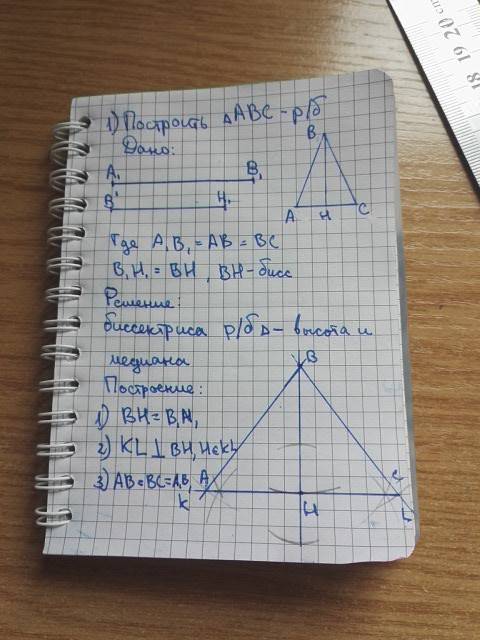 1) Построить △ABC - р/б
Дано:
A₁ B₁
B₁ H₁
B
A H C
где A₁B₁ = AB = BC
B₁H₁ = BH, BH - бисс
Решение:
биссектриса р/б △ - высота и
медиана
Построение:
1) BH = B₁H₁
2) KL ⊥ BH, H ∈ KL
3) AB = BC = A₁B₁
B
A C
K H L
18 19 20 cm